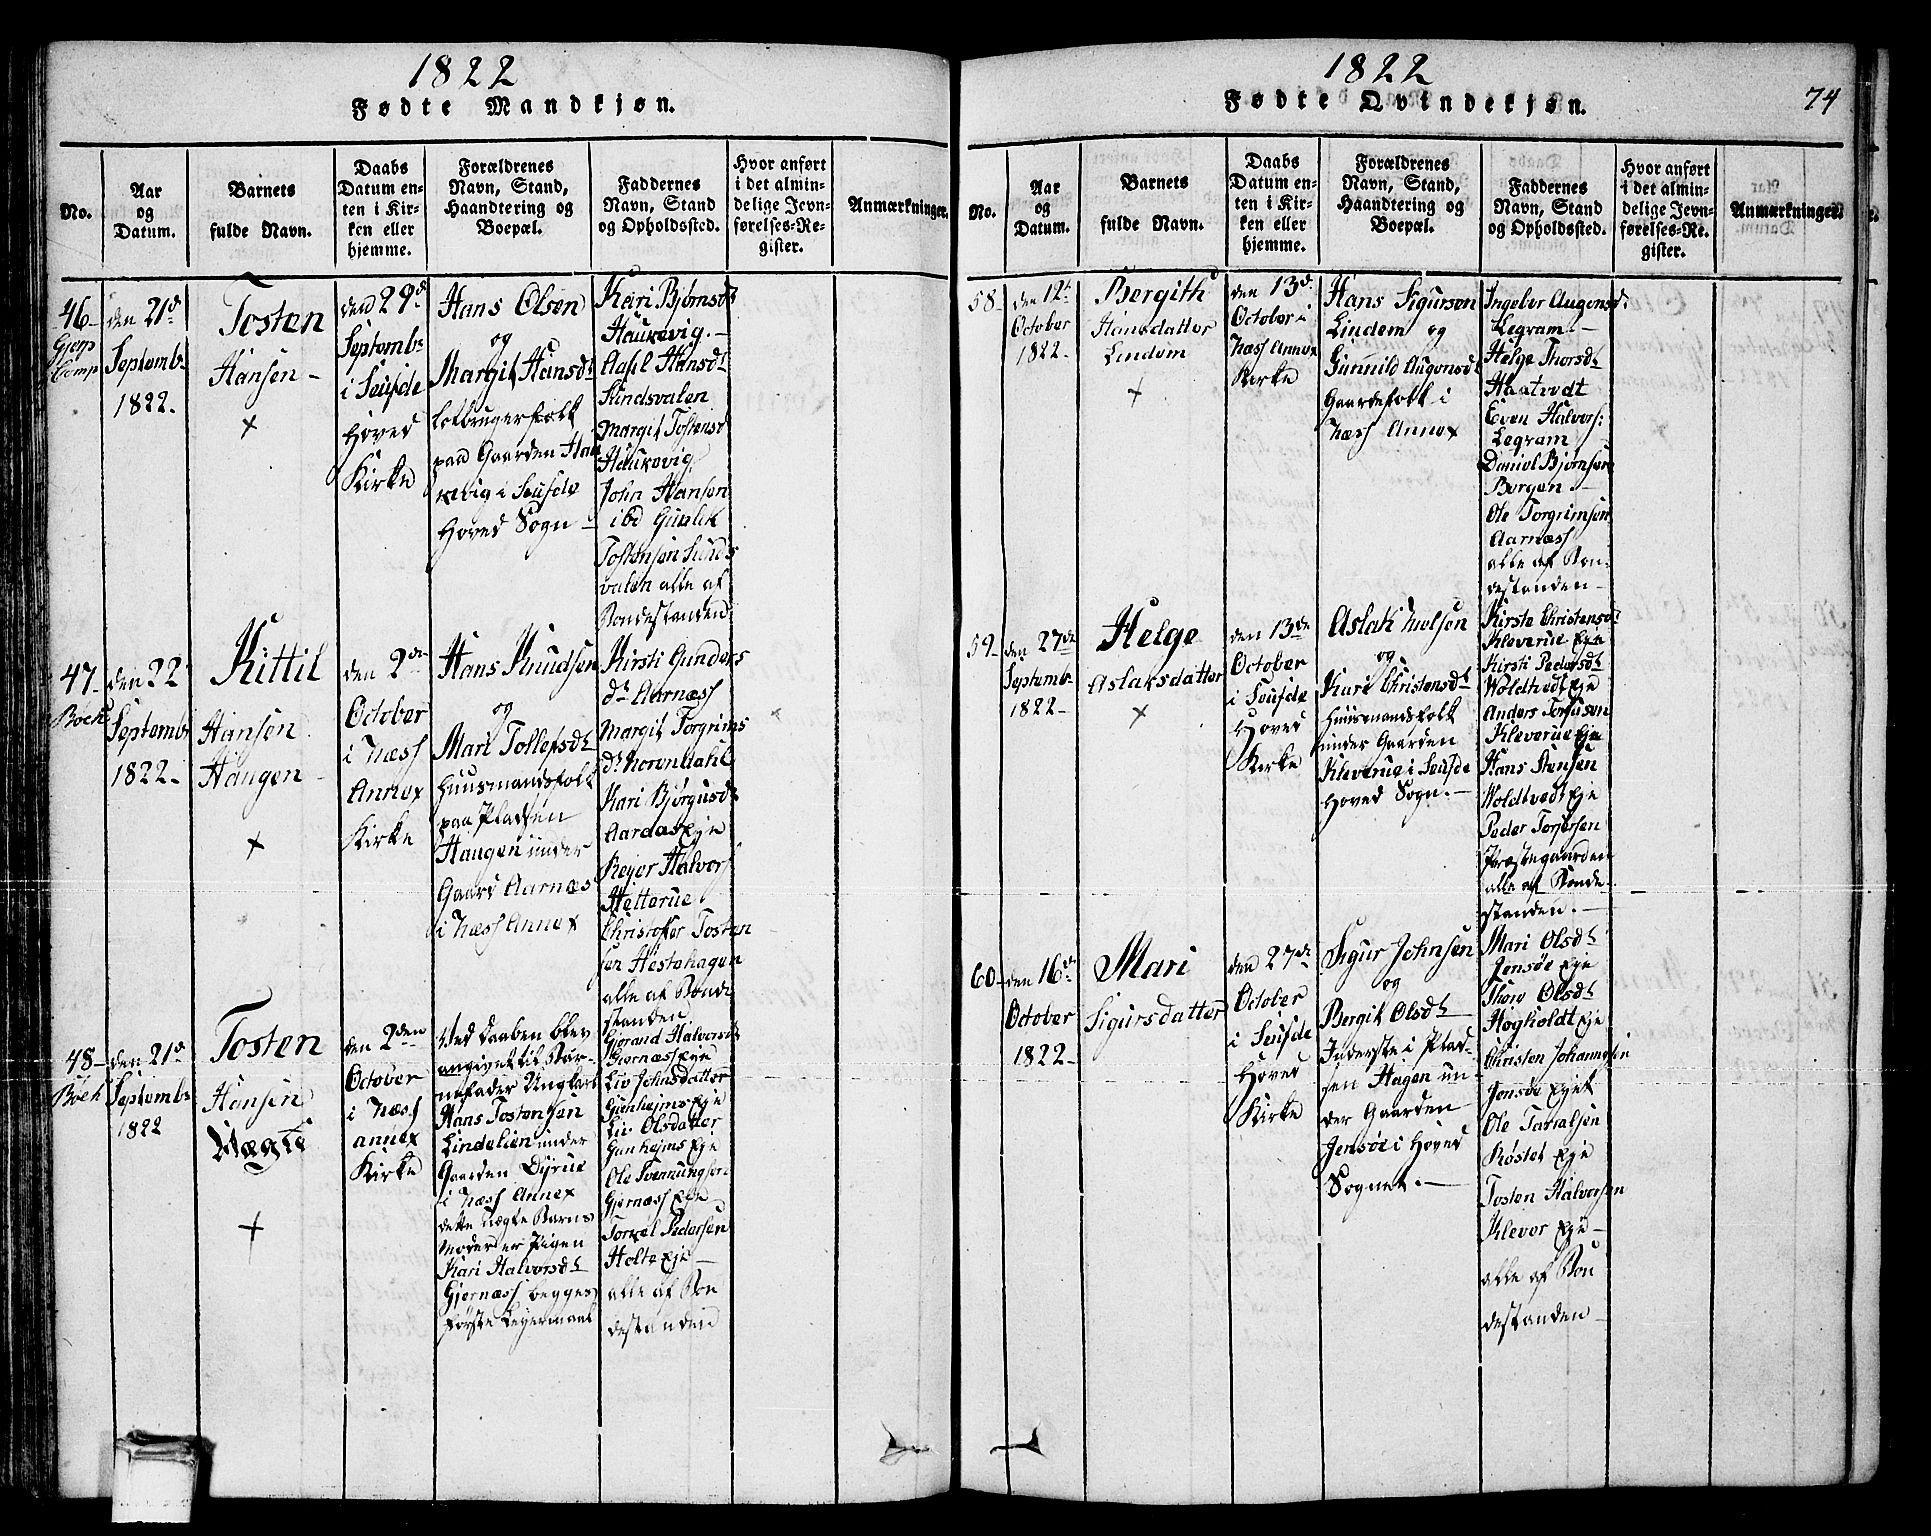 1822
Fødte Mandkjøn.
No.
Aar
og
Datum.
Barnets
fulde Navn.
Daabs
Datum en-
ten i Kir-
ken eller
hjemme.
Forældrenes
Navn, Stand,
Haandtering og
Boepæl.
Faddernes
Navn, Stand
og Opholdssted.
Hvor anført
i det almin-
delige Jevn-
førelses-Re-
gister.
Anmærkninger.
46-
den 21d
Septembr
1822.
Tosten
Hansen -
+
den 29d
Septembr
i Seufde
Hoved
Kirke
Hans Olsen
og
Margit Hansdt
paa Gaarden Hau
kevig i Seufde
Hoved Sogn -
Kari Bjørnsdt
Haukevig. -
Aasil Hansdt
Sindsvalen
Margit Tostensd
Haukevig.
John Hansen
ibd Gunlek
Tostensen Sunds
valen alle af
Bondestanden
47-
Bøeh
den 22
Septembr
1822-
Kittil
Hansen
Haugen -
+
den 2den
October
i Næss
Annex
Kirke
Hans Knudsen
og
Mari Tollefsdt
Huusmandsfolk
paa Pladsen
Haugen under
Gaard Aarnæs
i Næss Annex
Kirsti Gunders
dt Aarnæss
Margit Torgrims
dt Norendahl
Kari Bjørgusdt
Aardas Eje
Rejer Halvors
Hetterue
Christofer Tosten
sen Hestehagen
alle af Bonde
standen
48-
Bøeh
den 21d
Septembr
1822
Tosten
Hansen
Uægte
+
den 2den
October
i Næss
annex
Kirke
Ved Daaben blev
angivet til Bar-
nefader Ungkarl
Hans Tostensen
Lindelien under
Gaarden Dyrue
i Næss Annex
dette uægte Barns
Moder er Pigen
Kari Halvorsdt
Gjernæss begges
første Lejermaal
Gjørand Halvorsdt
Gjernæss Eje
Liv Johnsdatter
Gunhejms Eje
Liv Olsdatter
Gunhejms Eje
Ole Svennungsen
Gjernæss Eje
Torkel Pedersen
Holte Eje -
alle af Bon
destanden
1822
Fødte Qvindekjøn.
74
No.
Aar
og
Datum.
Barnets
fulde Navn.
Daabs
Datum en-
ten i Kir-
ken eller
hjemme.
Forældrenes
Navn, Stand,
Haandtering og
Boepæl.
Faddernes
Navn, Stand
og Opholdssted.
Hvor anført
i det almin-
delige Jevn-
førelses-Re-
gister.
Anmærkninger.
58-
den 12t
October
1822-
Bergith
Hansdatter
Lindem
+
den 13d
October i
Næss Annex
Kirke
Hans Sigursen
Lindem og
Gunnild Augonsdt
Gaardefolk i
Næss Annex
Ingeber Augonsdt
Legram. -
Helge Thorsdt
Haatvedt
Even Halvors:
Legram
Daniel Bjørnsen
Borgen -
Ole Torgrimsen
Aarnæss
alle af Bon-
destanden -
59-
den 27de
Septembr
1822-
Helge
Aslaksdatter
+
den 13de
October
i Seufde
Hoved
Kirke
Aslak Nielsen
og
Kari Christensdt
Huusmandsfolk
under Gaarden
Kleverue i Seufde
Hoved Sogn. -
Kirste Christensdt
Kleverue Eje
Kirsti Pedersdt
Woldtvedt Eje
Anders Torjusen
Kleverue Eje
Hans Stensen
Woldtvedt Eje
Peder Torjersen
Præstegaarden
alle af Bonde
standen. -
60-
den 16de
October
1822-
Mari
Sigursdatter
den 27de
October
i Seufde
Hoved
Kirke
Sigur Johnsen
og
Bergit Olsdt
Inderste i Plad-
sen Hagen un-
der Gaarden
Jensøe i Hoved
Sognet. -
Mari Olsdt
Jensøe Eje
Thore Olsdt
Høgholdt Eje
Christen Johannesen
Jensøe Ejet
Ole Tarialsen
Røstet Eje
Tosten Halvorsen
Klever Eje -
alle af Bon
destanden -